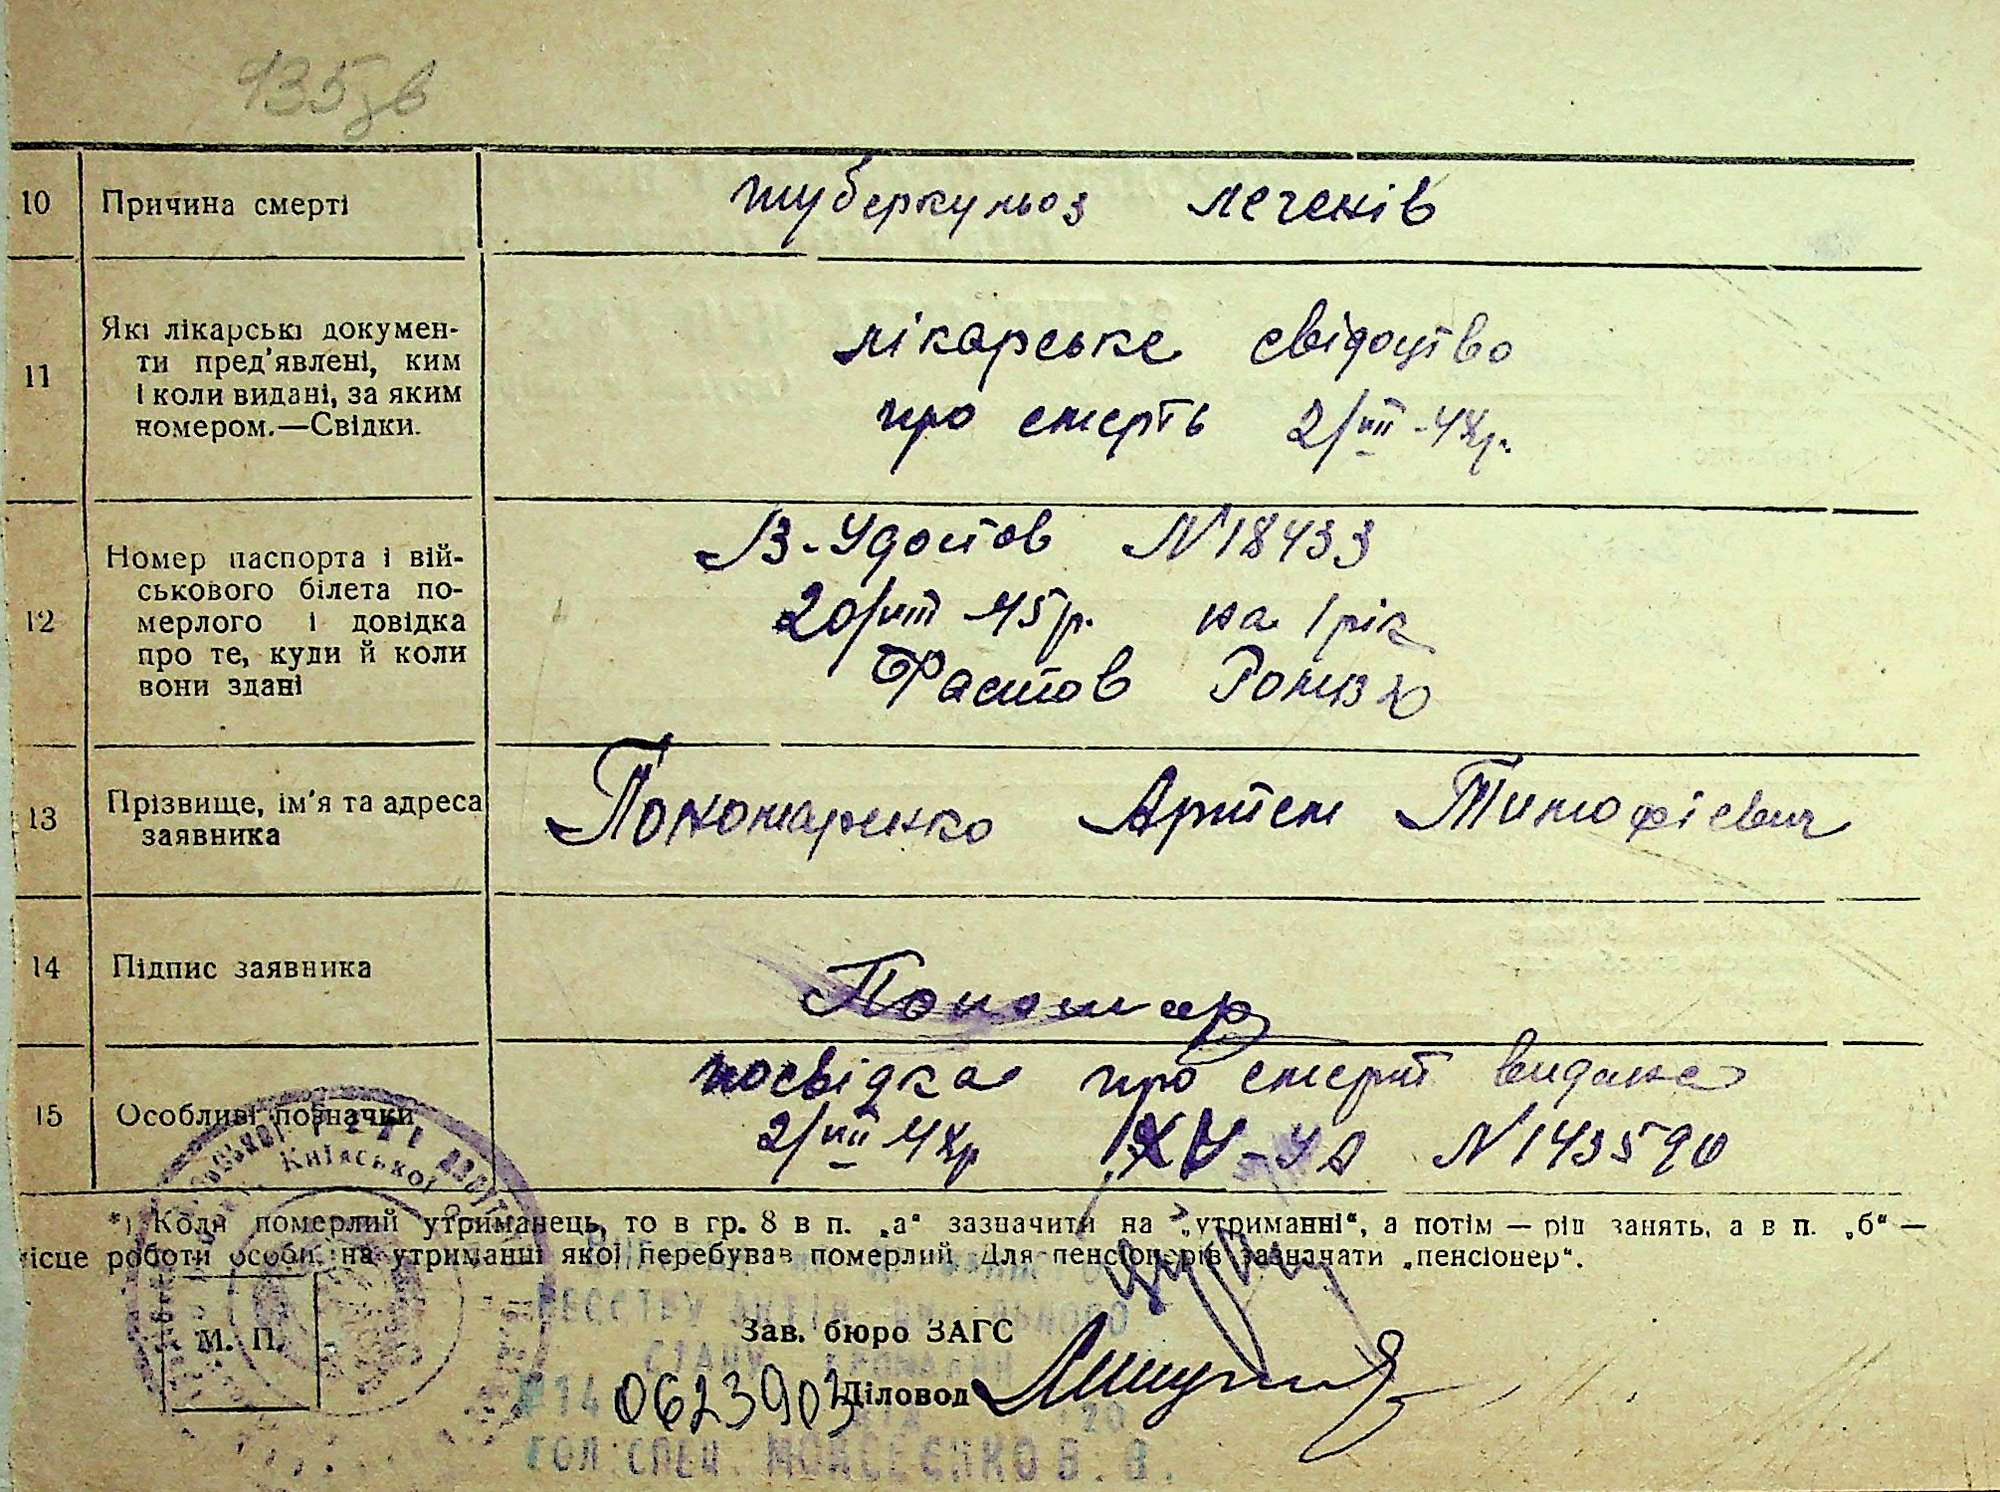 10 Причина смерті туберкульоз легенів
11 Які лікарські докумен-
ти пред'явлені, ким
і коли видані, за яким
номером.—Свідки.
лікарське свідоцтво
про смерть 2/VIII-48р.
12 Номер паспорта і вій-
ськового білета по-
мерлого і довідка
про те, куди й коли
вони здані
В-Удостов N18433
20/VIII 45р. на 1 рік
Фастов
13 Прізвище, ім'я та адреса
заявника
Пономаренко Артем Тимофієвич
14 Підпис заявника Пономар
15 Особливі позначки
посвідка про смерт видана
2/VIII 48р N143590
Київської
*) Коли померлий утриманець, то в гр. 8 в п. „а“ зазначити на „утриманні“, а потім — рід занять, а в п. „б“ —
місце роботи особи, на утриманні якої перебував померлий. Для пенсіонерів зазначати „пенсіонер“.
РЕЄСТРУ АКТІВ ЦИВІЛЬНОГО
СТАНУ ГРОМАДЯН
М. П.
Зав. бюро ЗАГС
0623903
Діловод
ГОЛ. СПЕЦ. МОЙСЕЄНКО В. В.